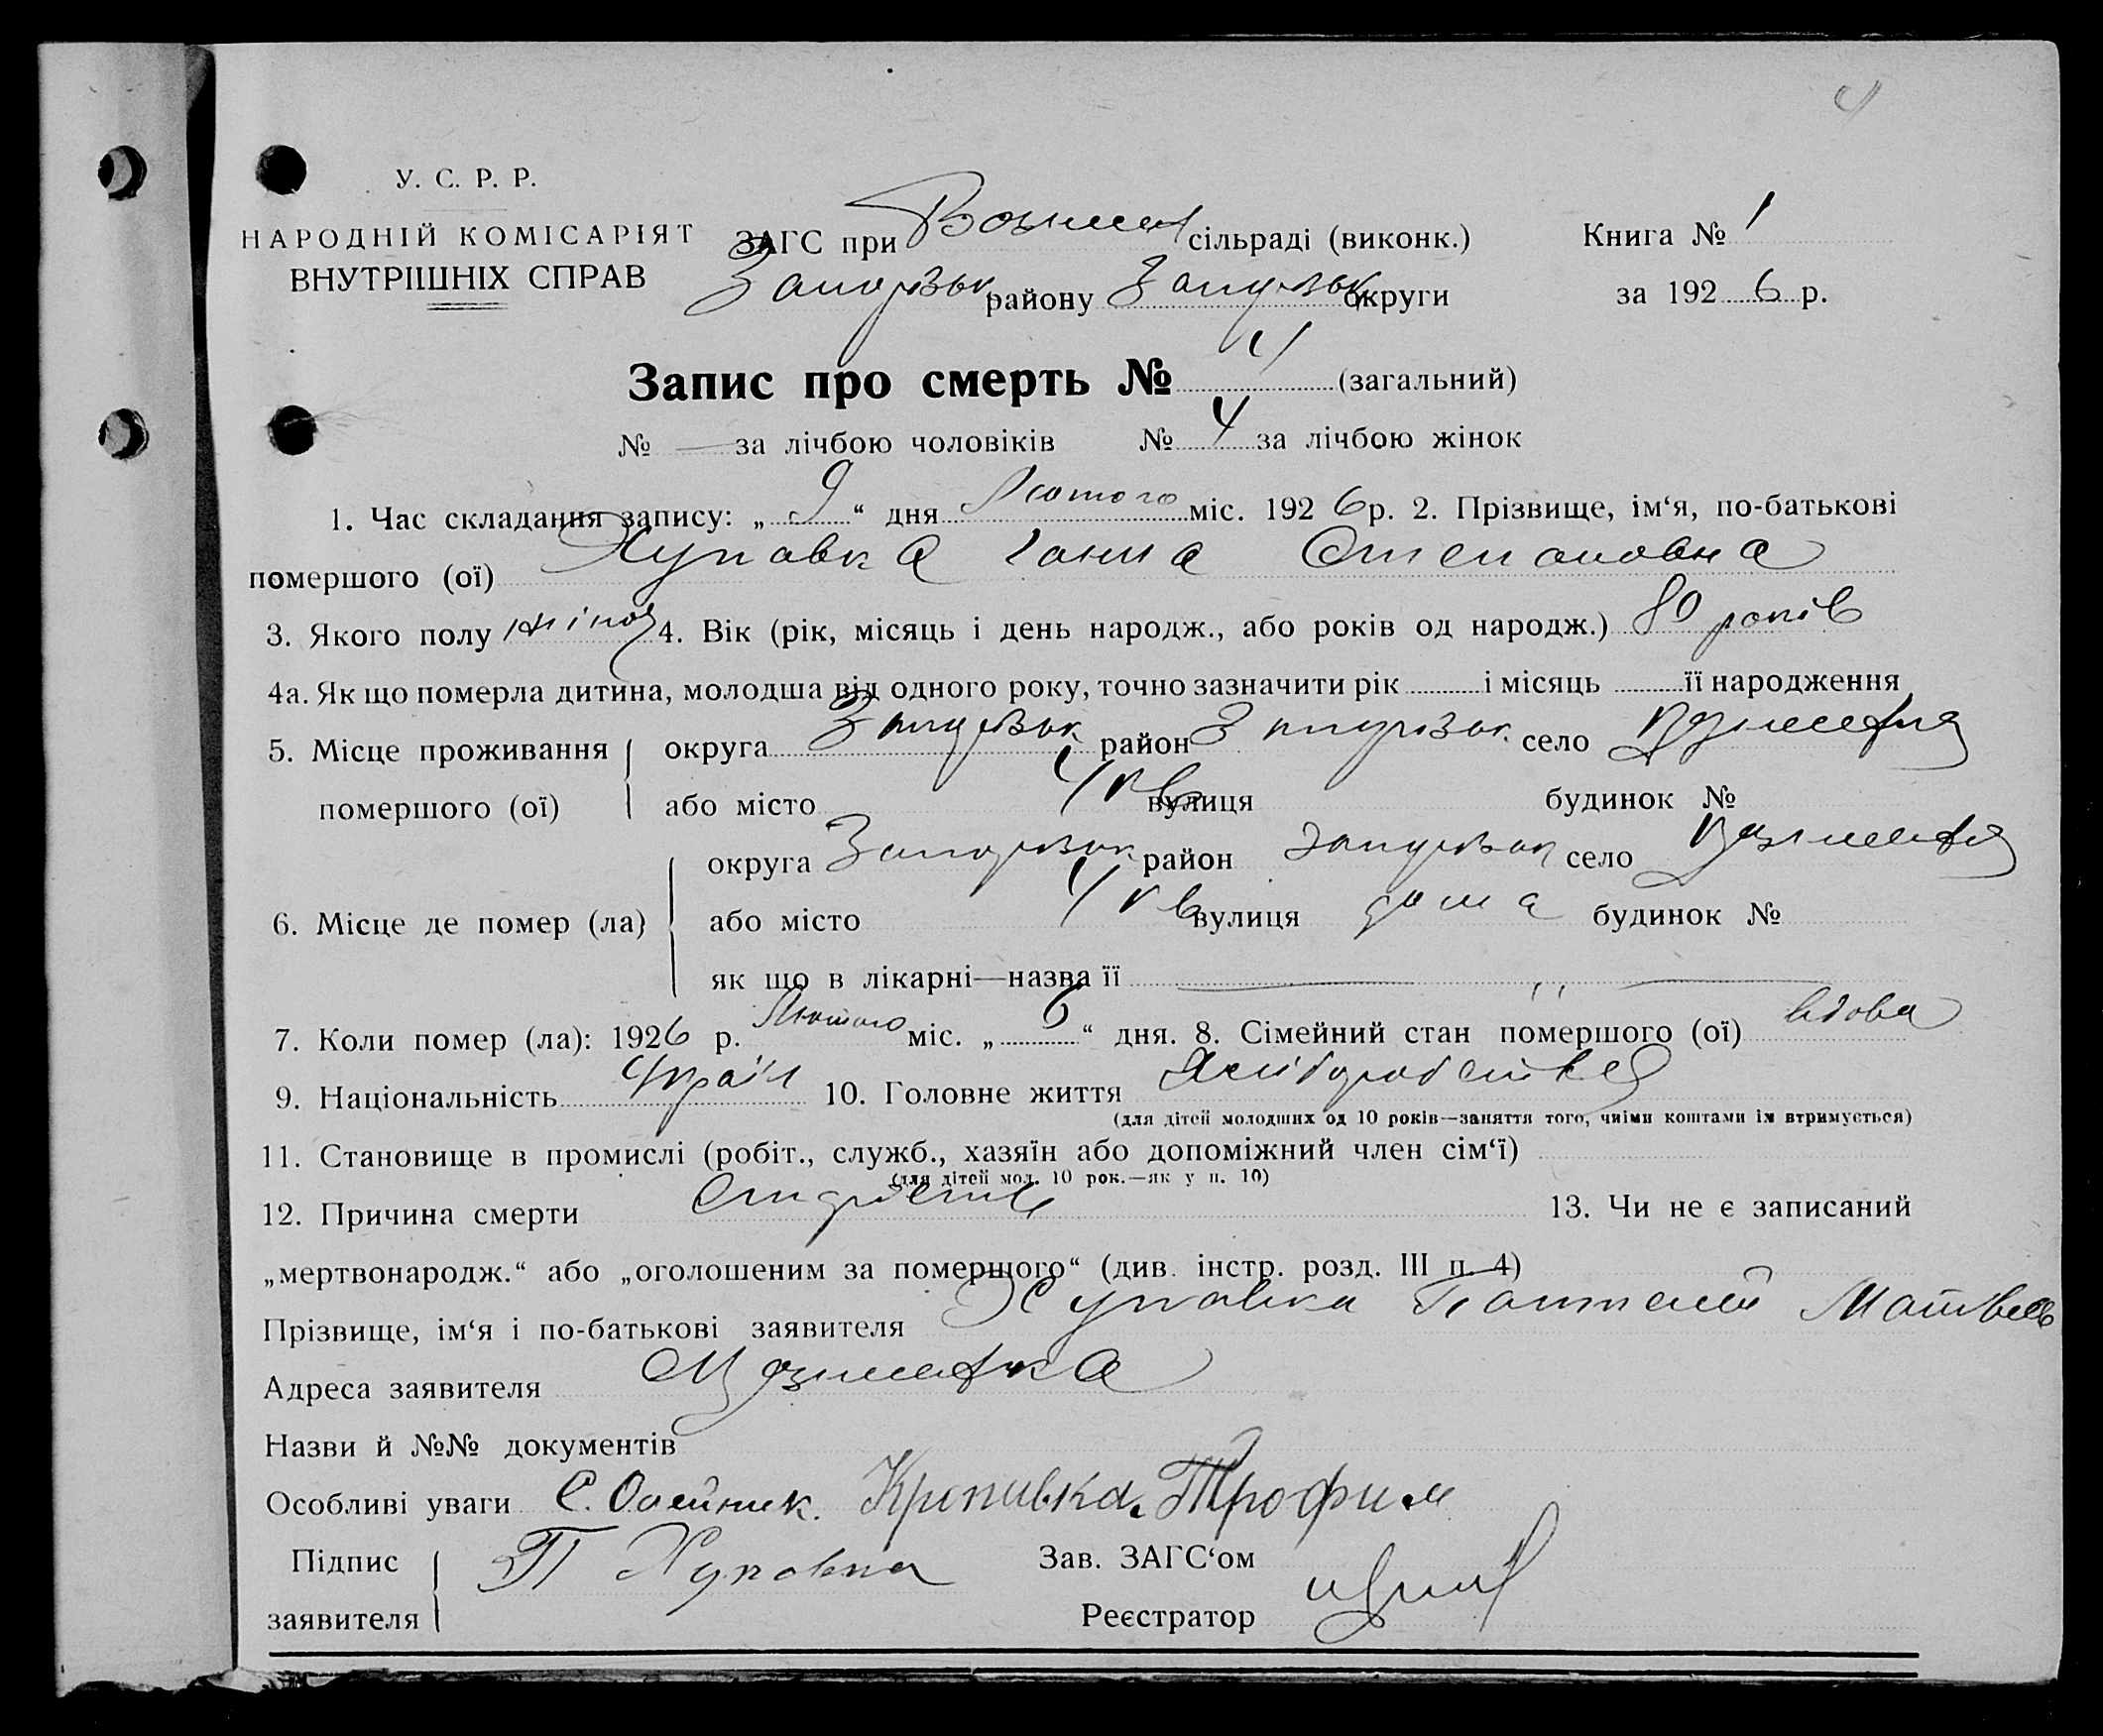 4
У. С. Р. Р.
НАРОДНІЙ КОМІСАРІЯТ
ВНУТРІШНІХ СПРАВ
ЗАГС при сільраді (виконк.)
району округи
Книга № 1
за 1926 р.
Запис про смерть № 4 (загальний)
№ — за лічбою чоловіків № 4 за лічбою жінок
1. Час складання запису: „ 9 “ дня Лютого міс. 1926 р. 2. Прізвище, ім‘я, по-батькові
помершого (ої) Хуповка Ганна Степановна
3. Якого полу жіноч 4. Вік (рік, місяць і день народж., або років од народж.) 80 років
4а. Як що померла дитина, молодша від одного року, точно зазначити рік і місяць її народження
5. Місце проживання помершого (ої) округа Запорізьк район Запорізьк село
або місто вулиця будинок №
6. Місце де помер (ла) округа Запорізьк район Запорізьк село
або місто вулиця дома будинок №
як що в лікарні—назва її —
7. Коли помер (ла): 1926 р. Лютого міс. „ 6 “ дня. 8. Сімейний стан помершого (ої) вдова
9. Національність Україн 10. Головне життя
(для дітей молодших од 10 років—заняття того, чиїми коштами їм втримується)
11. Становище в промислі (робіт., служб., хазяїн або допоміжний член сім‘ї)
(для дітей мол. 10 рок.—як у п. 10)
12. Причина смерти 13. Чи не є записаний
„мертвонародж.“ або „оголошеним за померщого“ (див. інстр. розд. III п. 4)
Прізвище, ім‘я і по-батькові заявителя Хуповка Пантелей
Адреса заявителя
Назви й №№ документів
Особливі уваги С. Олейник. Кропивка Трофим
Підпис заявителя П Хуповка
Зав. ЗАГС‘ом
Реєстратор